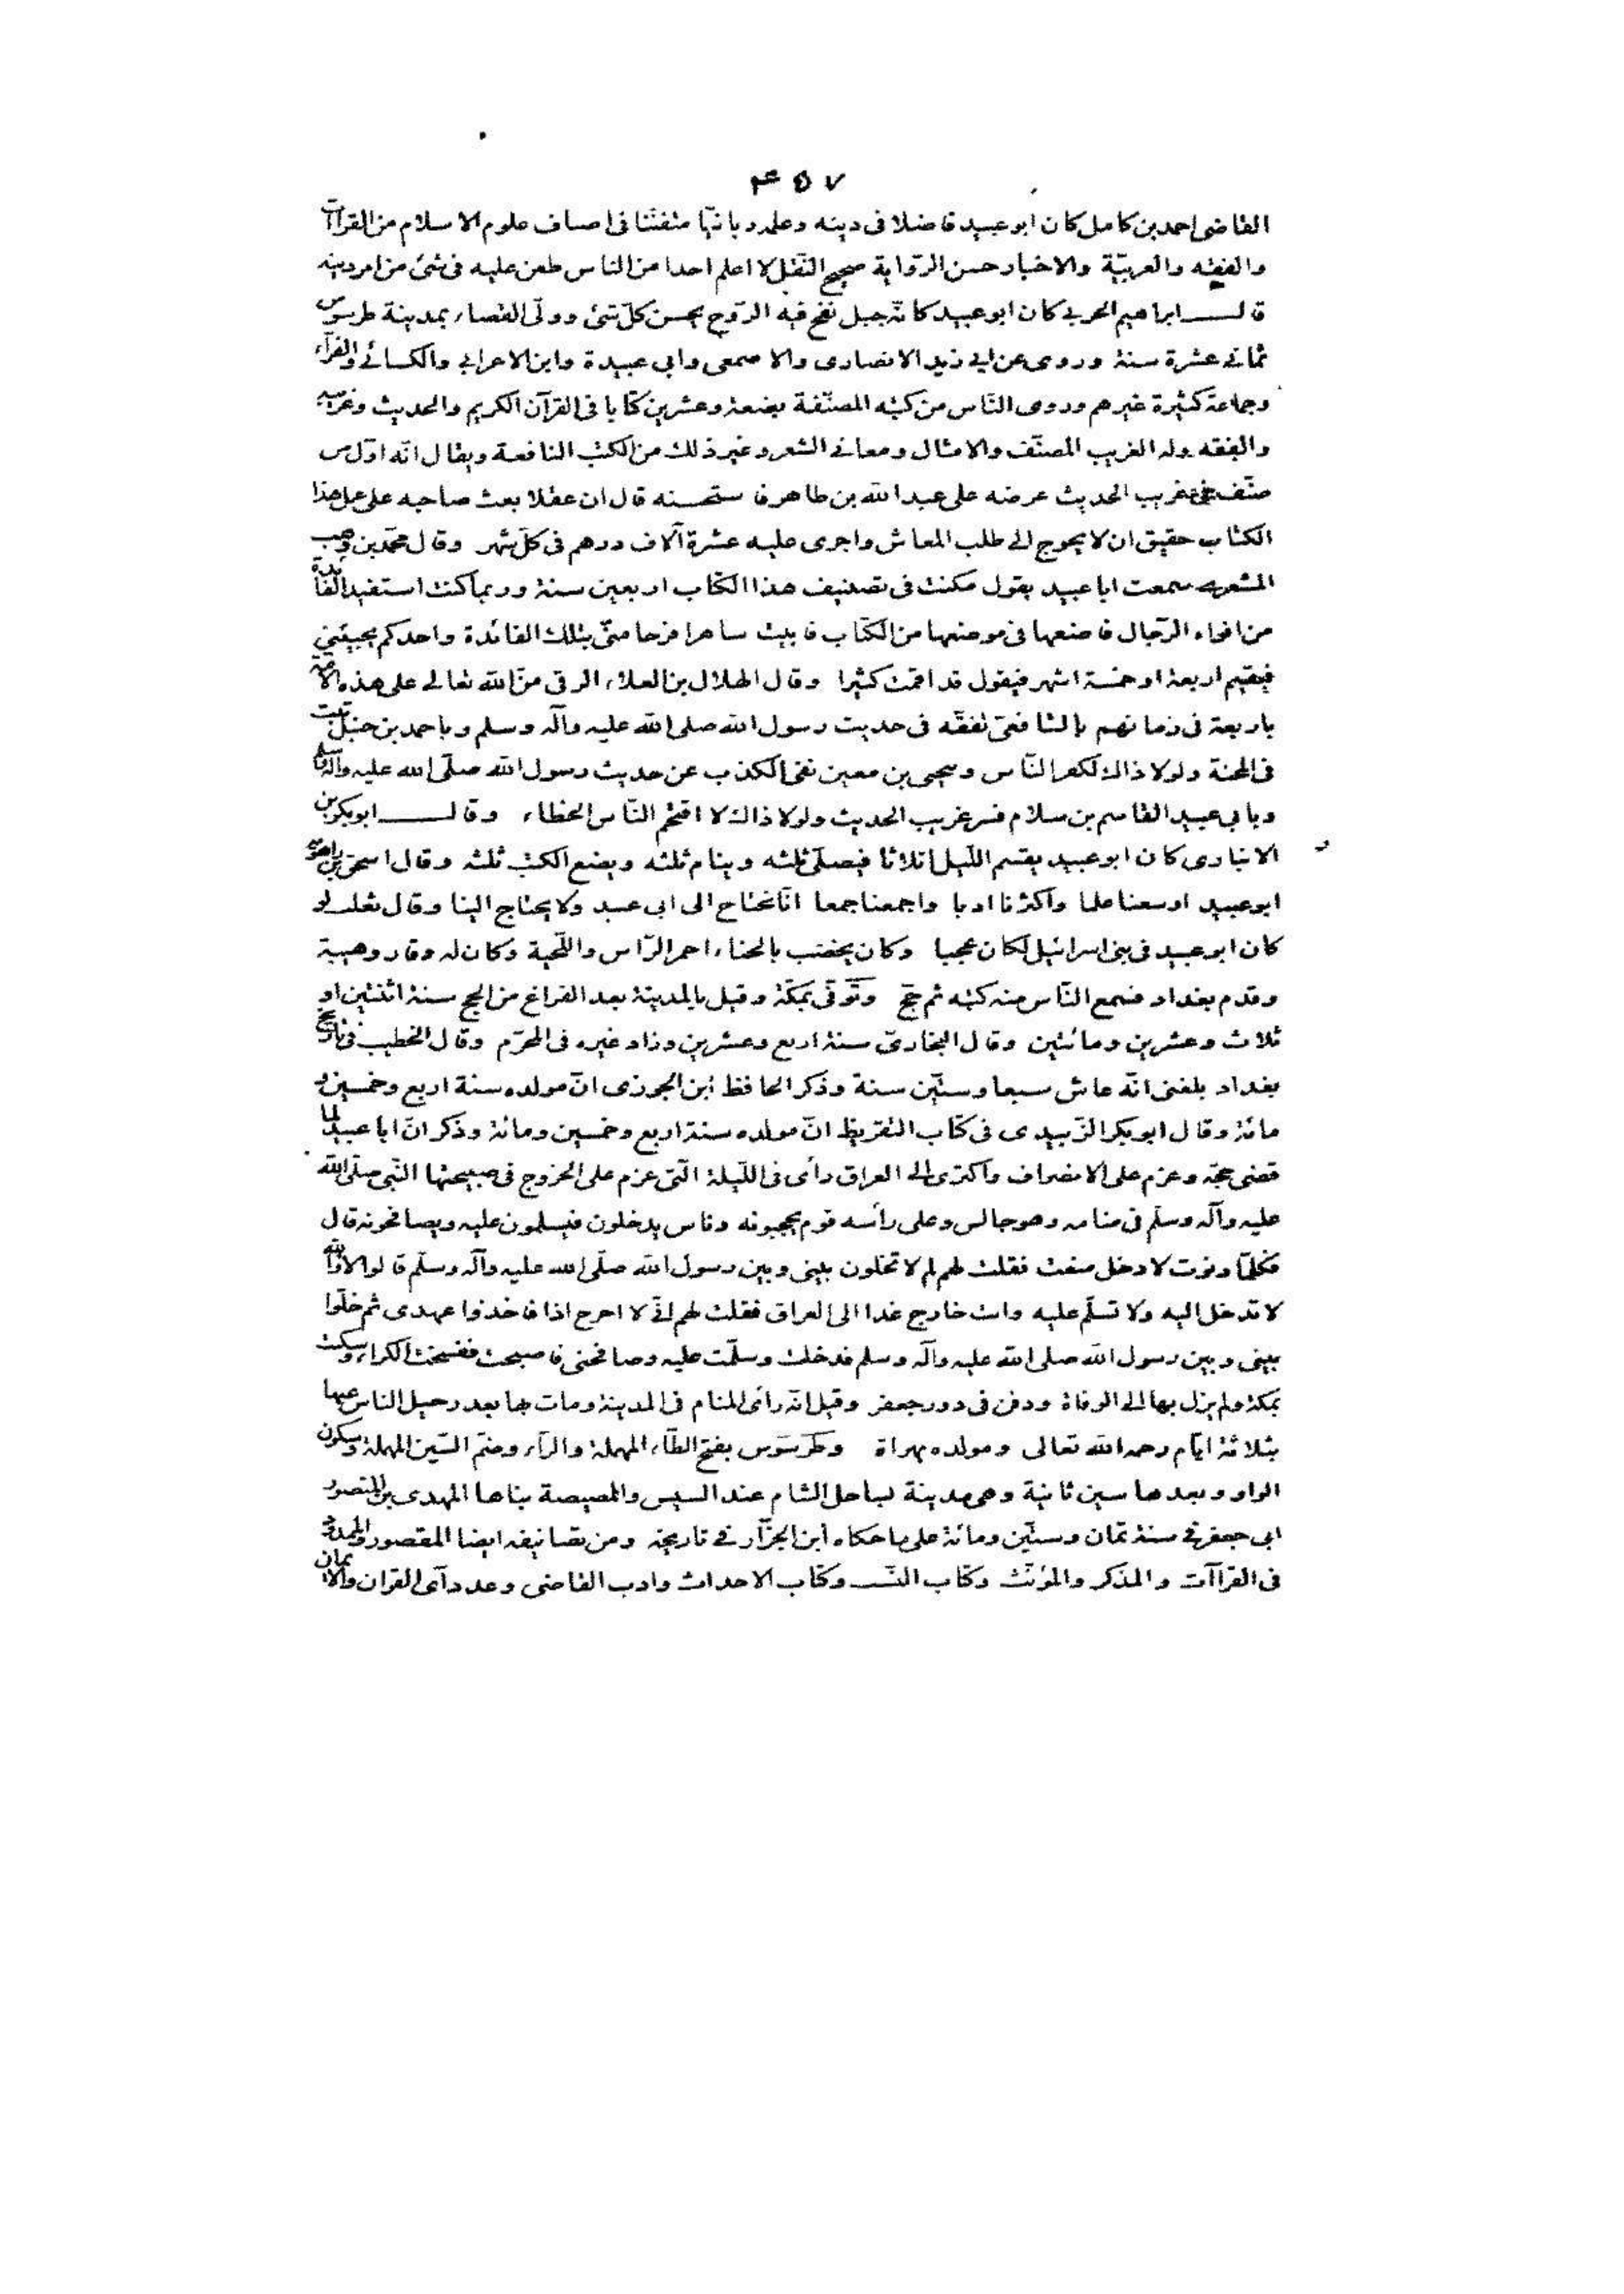 ۴۵۷
القاضى احمد بن كامل كان ابو عبيد فاضلا فى دينه وعلمه ربانيّا متفنّنا فى اصناف علوم الاسلام من القراآت
والفقه والعربيّة والاخبار حسن الرّواية صحيح النّقل لا اعلم احدا من الناس طعن عليه فى شئ من امر دينه
قال ابراهيم الحربى كان ابو عبيد كانّه جبل نفخ فيه الرّوح يحسن كلّ شئ وولّى القضاء بمدينة طرسوس
ثمانى عشرة سنة وروى عن ابى زيد الانصارى والاصمعى وابى عبيدة وابن الاعرابى والكسائى والفرّاء
وجماعة كثيرة غيرهم وروى النّاس من كتبه المصنّفة بضعة وعشرين كتابا فى القرآن الكريم والحديث وغريبه
والفقه وله الغريب المصنّف والامثال ومعانى الشعر وغير ذلك من الكتب النافعة ويقال انّه اوّل من
صنّف فى غريب الحديث عرضه على عبد الله بن طاهر فاستحسنه قال ان عقلا بعث صاحبه على عمل هذا
الكتاب حقيق ان لا يحوج الى طلب المعاش واجرى عليه عشرة آلاف درهم فى كلّ شهر وقال محمّد بن وهب
المشعرى سمعت ابا عبيد يقول مكثت فى تصنيف هذا الكتاب اربعين سنة وربما كنت استفيد الفائدة
من افواه الرّجال فاضعها فى موضعها من الكتاب فابيت ساهرا فرحا منّى بتلك الفائدة واحدكم يجيئنى
فيقيم اربعة او خمسة اشهر فيقول قد اقمت كثيرا وقال الهلال بن العلاء الرقى منّ الله تعالى على هذه الامّة
باربعة فى زمانهم بالشافعىّ تفقّه فى حديث رسول الله صلى الله عليه وآله وسلم وباحمد بن حنبل ثبت
فى المحنة ولولا ذاك لكفر النّاس ويحيى بن معين نفى الكذب عن حديث رسول الله صلّى الله عليه وآله وسلم
وبابى عبيد القاسم بن سلام فسر غريب الحديث ولولا ذاك لاقتحم النّاس الخطاء وقال ابو بكر بن
الانبارى كان ابو عبيد يقسم اللّيل اثلاثا فيصلّى ثلثه وينام ثلثه ويضع الكتب ثلثه وقال اسحق بن راهويه
ابو عبيد اوسعنا علما واكثرنا ادبا واجمعنا جمعا انّا نحتاج الى ابى عبيد ولا يحتاج الينا وقال ثعلب لو
كان ابو عبيد فى بنى اسرائيل لكان عجبا وكان يخضب بالحناء احمر الرّاس واللّحية وكان له وقار وهيبة
وقدم بغداد فسمع النّاس منه كتبه ثم حجّ وتوّفى بمكّة وقيل بالمدينة بعد الفراغ من الحج سنة اثنتين او
ثلاث وعشرين ومائتين وقال البخارىّ سنة اربع وعشرين وزاد غيره فى المحرّم وقال الخطيب فى تاريخ
بغداد بلغنى انّه عاش سبعا وستّين سنة وذكر الحافظ ابن الجوزى انّ مولده سنة اربع وخمسين و
مائة وقال ابو بكر الزّبيدى فى كتاب التقريظ انّ مولده سنة اربع وخمسين ومائة وذكر انّ ابا عبيد لما
قضى حجّه وعزم على الانصراف واكترى الى العراق رأى فى اللّيلة الّتى عزم على الخروج فى صبيحتها النّبى صلّى الله
عليه وآله وسلّم فى منامه وهو جالس وعلى رأسه قوم يحجبونه وناس يدخلون فيسلمون عليه ويصافحونه قال
فكلّما دنوت لادخل منعت فقلت لهم لم لا تخلون بينى وبين رسول الله صلّى الله عليه وآله وسلّم قالوا لا والله
لا تدخل اليه ولا تسلّم عليه وانت خارج غدا الى العراق فقلت لهم انّى لا اخرج اذا فاخذوا عهدى ثم خلّوا
بينى وبين رسول الله صلى الله عليه وآله وسلم فدخلت وسلّمت عليه وصافحنى فاصبحت ففسخت الكراء وسكنت
بمكة ولم يزل بها الى الوفاة ودفن فى دور جعفر وقيل انّه رأى المنام فى المدينة ومات بها بعد رحيل الناس عنها
بثلاثة ايّام رحمه الله تعالى ومولده بهراة وطَرَسُوس بفتح الطّاء المهملة والرّاء وضمّ السّين المهملة وسكون
الواو وبعدها سين ثانية وهى مدينة بساحل الشام عند السيس والمصيصة بناها المهدى بن المنصور
ابى جعفر فى سنة ثمان وستّين ومائة على ما حكاه ابن الجزّار فى تاريخه ومن تصانيفه ايضا المقصور والممدود
فى القراآت والمذكر والمؤنّث وكتاب النّسب وكتاب الاحداث وادب القاضى وعدد آى القران والايمان